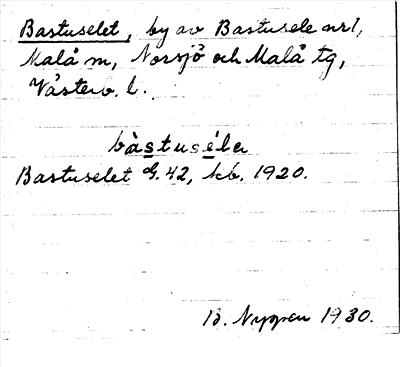 Bastuselet, by av Bastusele nr 1,
Malå sn, Norsjö och Malå tg,
Västerb. l.
bàstuséla
Bastuselet G. 42, kb. 1920.
B. Nyman 1930.